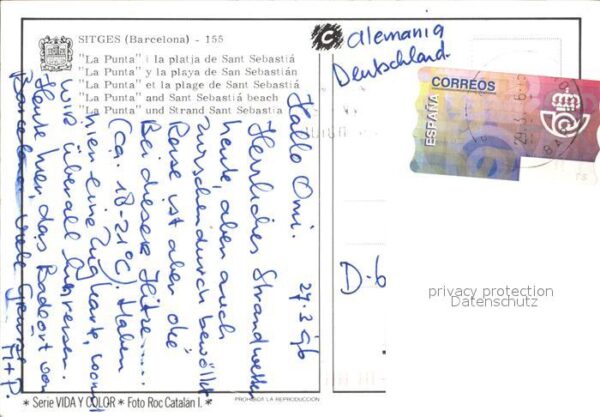 SITGES (Barcelona) - 155
"La Punta" i la platja de Sant Sebastiá
"La Punta" y la playa de San Sebastián
"La Punta" et la plage de Sant Sebastiá
"La Punta" and Sant Sebastiá beach
"La Punta" und Strand Sant Sebastiá
C
Alemania
Deutschland.
CORREOS
ESPAÑA
27.3.96
Hallo Omi.
Herrliches Strandwetter
heute, aber auch
zwischendurch bewölkt
Reise ist aber die
Bei dieser Hitze....
(ca. 18-21°C). Haben
hier eine Zugkarte, womit
wir überall hinreisen.
Heute hier, das Badeort von
Barcelona. Viele Grüsse
M+P.
D-6
privacy protection
Datenschutz
* Serie VIDA Y COLOR * Foto Roc Catalan I. *
PROHIBIDA LA REPRODUCCIÓN